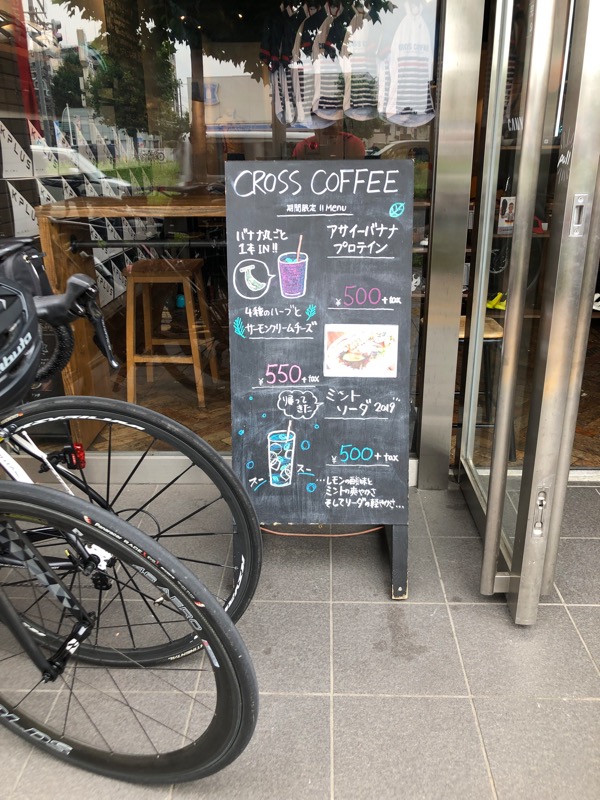 CROSS COFFEE
期間限定 11 Menu
バナナ丸ごと
1本 IN!!
アサイーバナナ
プロテイン
¥500+tax
4種のハーブと
サーモンクリームチーズ
¥550+tax
帰って
きた
ミント
ソーダ 2018
¥500+tax
スー
スー
...レモンの酸味と
ミントの爽やかさ
そしてソーダの軽やかさ...
PLUS